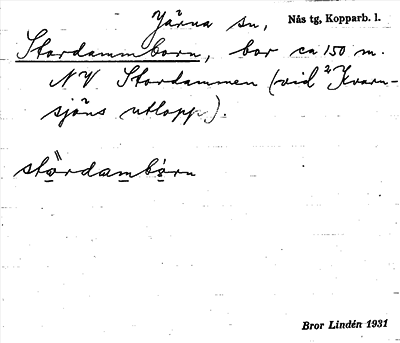 Järna sn, Nås tg, Kopparb. l.
Stordammborn, bor ca 150 m.
NV. Stordammen (vid 2 Kvarn-
sjöns utlopp).
stördambörn
Bror Lindén 1931